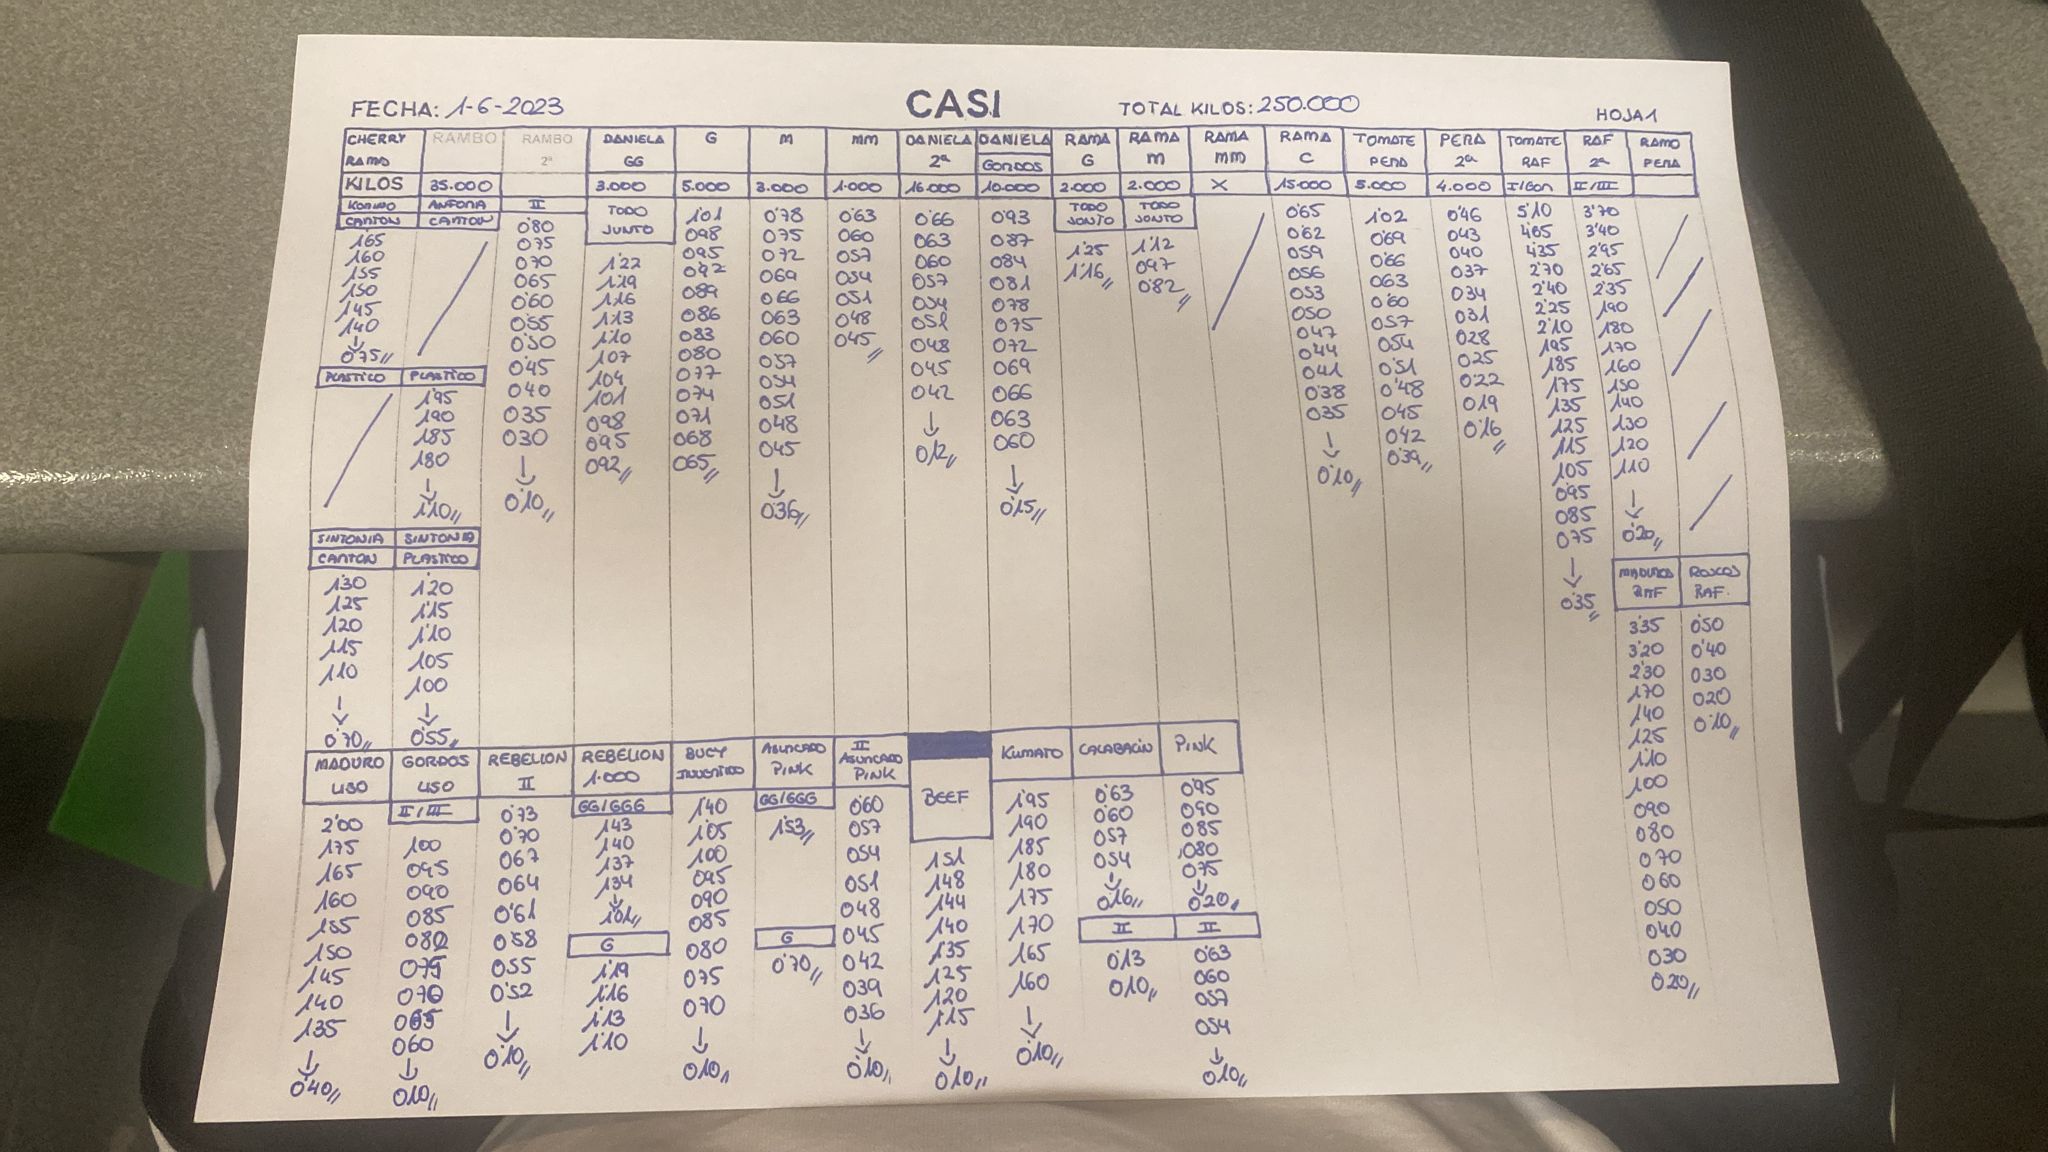 FECHA: 1-6-2023 CASI TOTAL KILOS: 250.000 HOJA 1
CHERRY RAMO
RAMBO
RAMBO 2ª
DANIELA GG
G
M
MM
DANIELA 2ª
DANIELA GORDOS
RAMA G
RAMA M
RAMA MM
RAMA C
TOMATE PERA
PERA 2ª
TOMATE RAF
RAF 2ª
RAMO PERA
KILOS 35.000 3.000 5.000 3.000 1.000 16.000 10.000 2.000 2.000 X 15.000 5.000 4.000 I/GOR II/III
CARTON
1'65
1'60
1'55
1'50
1'45
1'40
↓
0'75//
PLASTICO
SINTONIA
CARTON
1'30
1'25
1'20
1'15
1'10
↓
0'70//
CARTON
PLASTICO
1'95
1'90
1'85
1'80
↓
1'10//
SINTONIA
PLASTICO
1'20
1'15
1'10
1'05
1'00
↓
0'55//
II
0'80
0'75
0'70
0'65
0'60
0'55
0'50
0'45
0'40
0'35
0'30
↓
0'10//
TODO
JUNTO
1'22
1'19
1'16
1'13
1'10
1'07
1'04
1'01
0'98
0'95
0'92//
1'01
0'98
0'95
0'92
0'89
0'86
0'83
0'80
0'77
0'74
0'71
0'68
0'65//
0'78
0'75
0'72
0'69
0'66
0'63
0'60
0'57
0'54
0'51
0'48
0'45
↓
0'36//
0'63
0'60
0'57
0'54
0'51
0'48
0'45//
0'66
0'63
0'60
0'57
0'54
0'51
0'48
0'45
0'42
↓
0'12//
0'93
0'87
0'84
0'81
0'78
0'75
0'72
0'69
0'66
0'63
0'60
↓
0'15//
TODO
JUNTO
1'25
1'16//
TODO
JUNTO
1'12
0'97
0'82//
0'65
0'62
0'59
0'56
0'53
0'50
0'47
0'44
0'41
0'38
0'35
↓
0'10//
1'02
0'69
0'66
0'63
0'60
0'57
0'54
0'51
0'48
0'45
0'42
0'39//
0'46
0'43
0'40
0'37
0'34
0'31
0'28
0'25
0'22
0'19
0'16//
5'10
4'65
4'35
2'70
2'40
2'25
2'10
1'95
1'85
1'75
1'35
1'25
1'15
1'05
0'95
0'85
0'75
↓
0'35//
3'70
3'40
2'95
2'65
2'35
1'90
1'80
1'70
1'60
1'50
1'40
1'30
1'20
1'10
↓
0'20//
MADUROS
RAF
3'35
3'20
2'30
1'70
1'40
1'25
1'10
1'00
0'90
0'80
0'70
0'60
0'50
0'40
0'30
0'20//
RAF.
0'50
0'40
0'30
0'20
0'10//
MADURO
LISO
2'00
1'75
1'65
1'60
1'55
1'50
1'45
1'40
1'35
↓
0'40//
GORDOS
LISO
II/III
1'00
0'95
0'90
0'85
0'80
0'75
0'70
0'65
0'60
↓
0'10//
REBELION
II
0'73
0'70
0'67
0'64
0'61
0'58
0'55
0'52
↓
0'10//
REBELION
1.000
GG/GGG
1'43
1'40
1'37
1'34
↓
1'01//
G
1'19
1'16
1'13
1'10
1'40
1'05
1'00
0'95
0'90
0'85
0'80
0'75
0'70
↓
0'10//
ASURCADO
PINK
GG/GGG
1'53//
G
0'70//
II
ASURCADO
PINK
0'60
0'57
0'54
0'51
0'48
0'45
0'42
0'39
0'36
↓
0'10//
BEEF
1'51
1'48
1'44
1'40
1'35
1'25
1'20
1'15
↓
0'10//
KUMATO
1'95
1'90
1'85
1'80
1'75
1'70
1'65
1'60
↓
0'10//
CALABACIN
0'63
0'60
0'57
0'54
↓
0'16//
II
0'13
0'10//
PINK
0'95
0'90
0'85
0'80
0'75
↓
0'20//
II
0'63
0'60
0'57
0'54
↓
0'10//